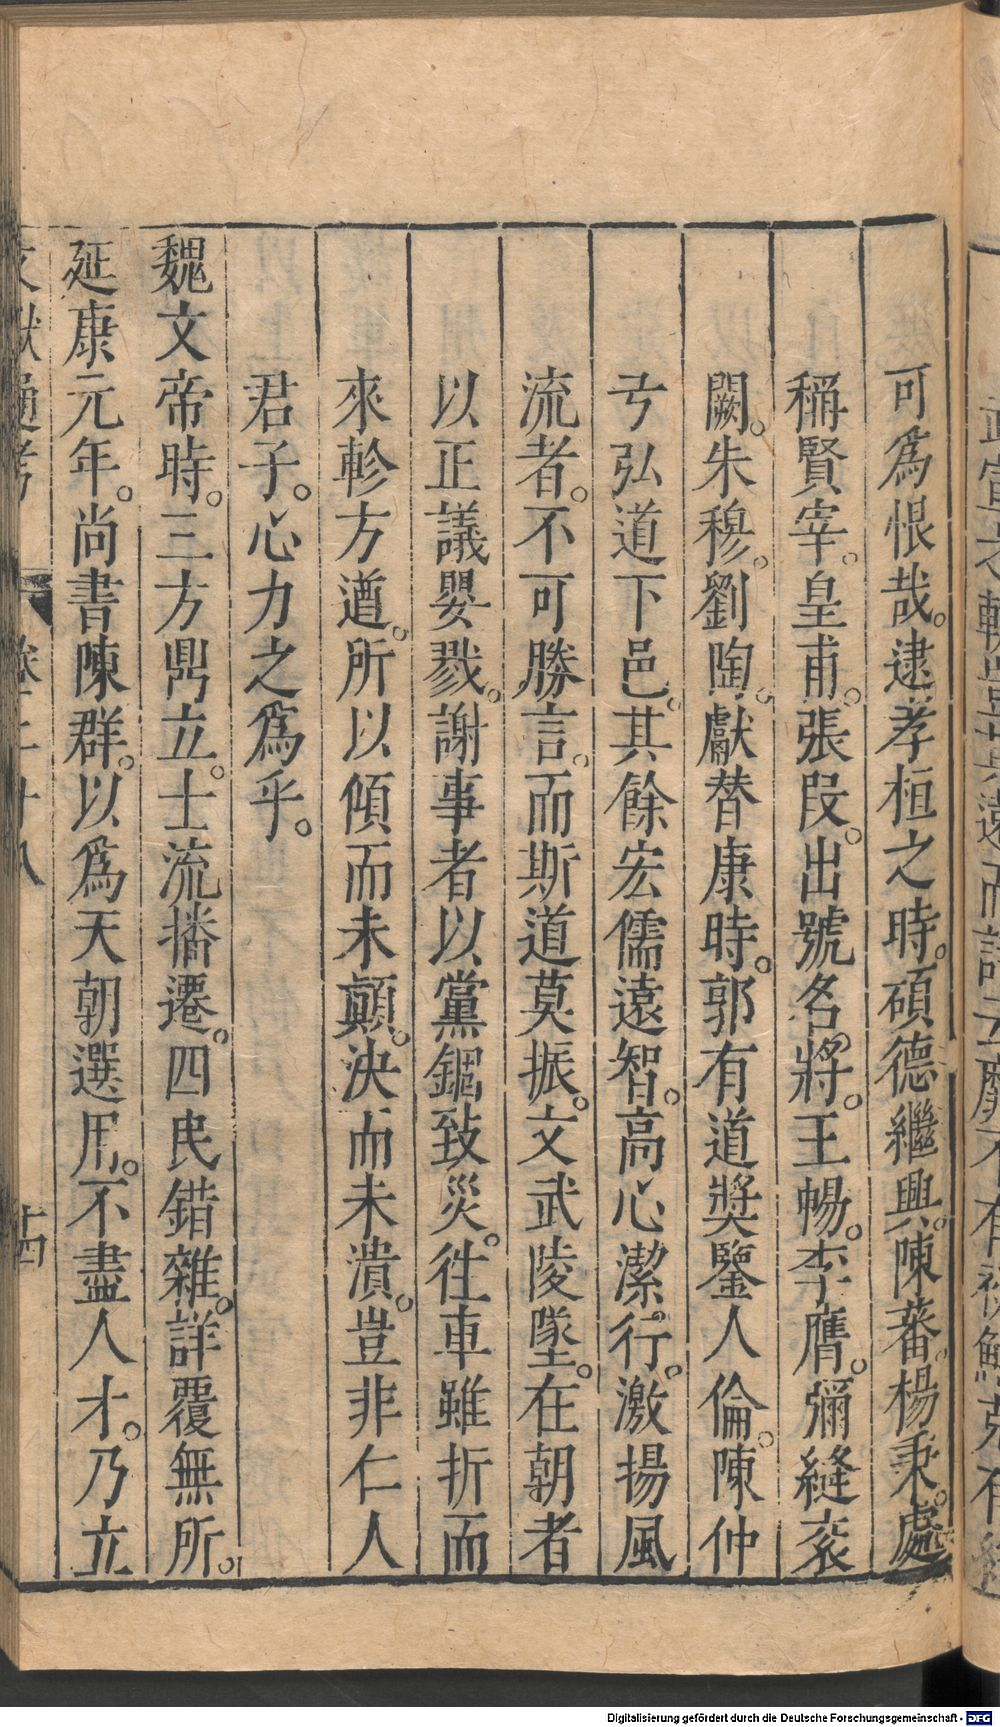 可爲恨哉。逮孝桓之時。碩德繼興。陳蕃。楊秉。處
稱賢宰。皇甫。張叚。出號名將。王暢。李膺。彌縫衮
闕。朱穆。劉陶。獻替康時。郭有道奬鑒人倫。陳仲
弓弘道下邑。其餘宏儒遠智。高心潔行。激揚風
流者。不可勝言。而斯道莫振。文武陵墜。在朝者
以正議嬰戮。謝事者以黨錮致災。徃車雖折而
來軫方遒。所以傾而未顚。決而未潰。豈非仁人
君子。心力之爲乎。
魏文帝時。三方鼎立。士流播遷。四民錯雜。詳覆無所。
延康元年。尚書陳群。以爲天朝選用。不盡人才。乃立
文獻通考 卷二十八 十四
Digitalisierung gefördert durch die Deutsche Forschungsgemeinschaft - DFG